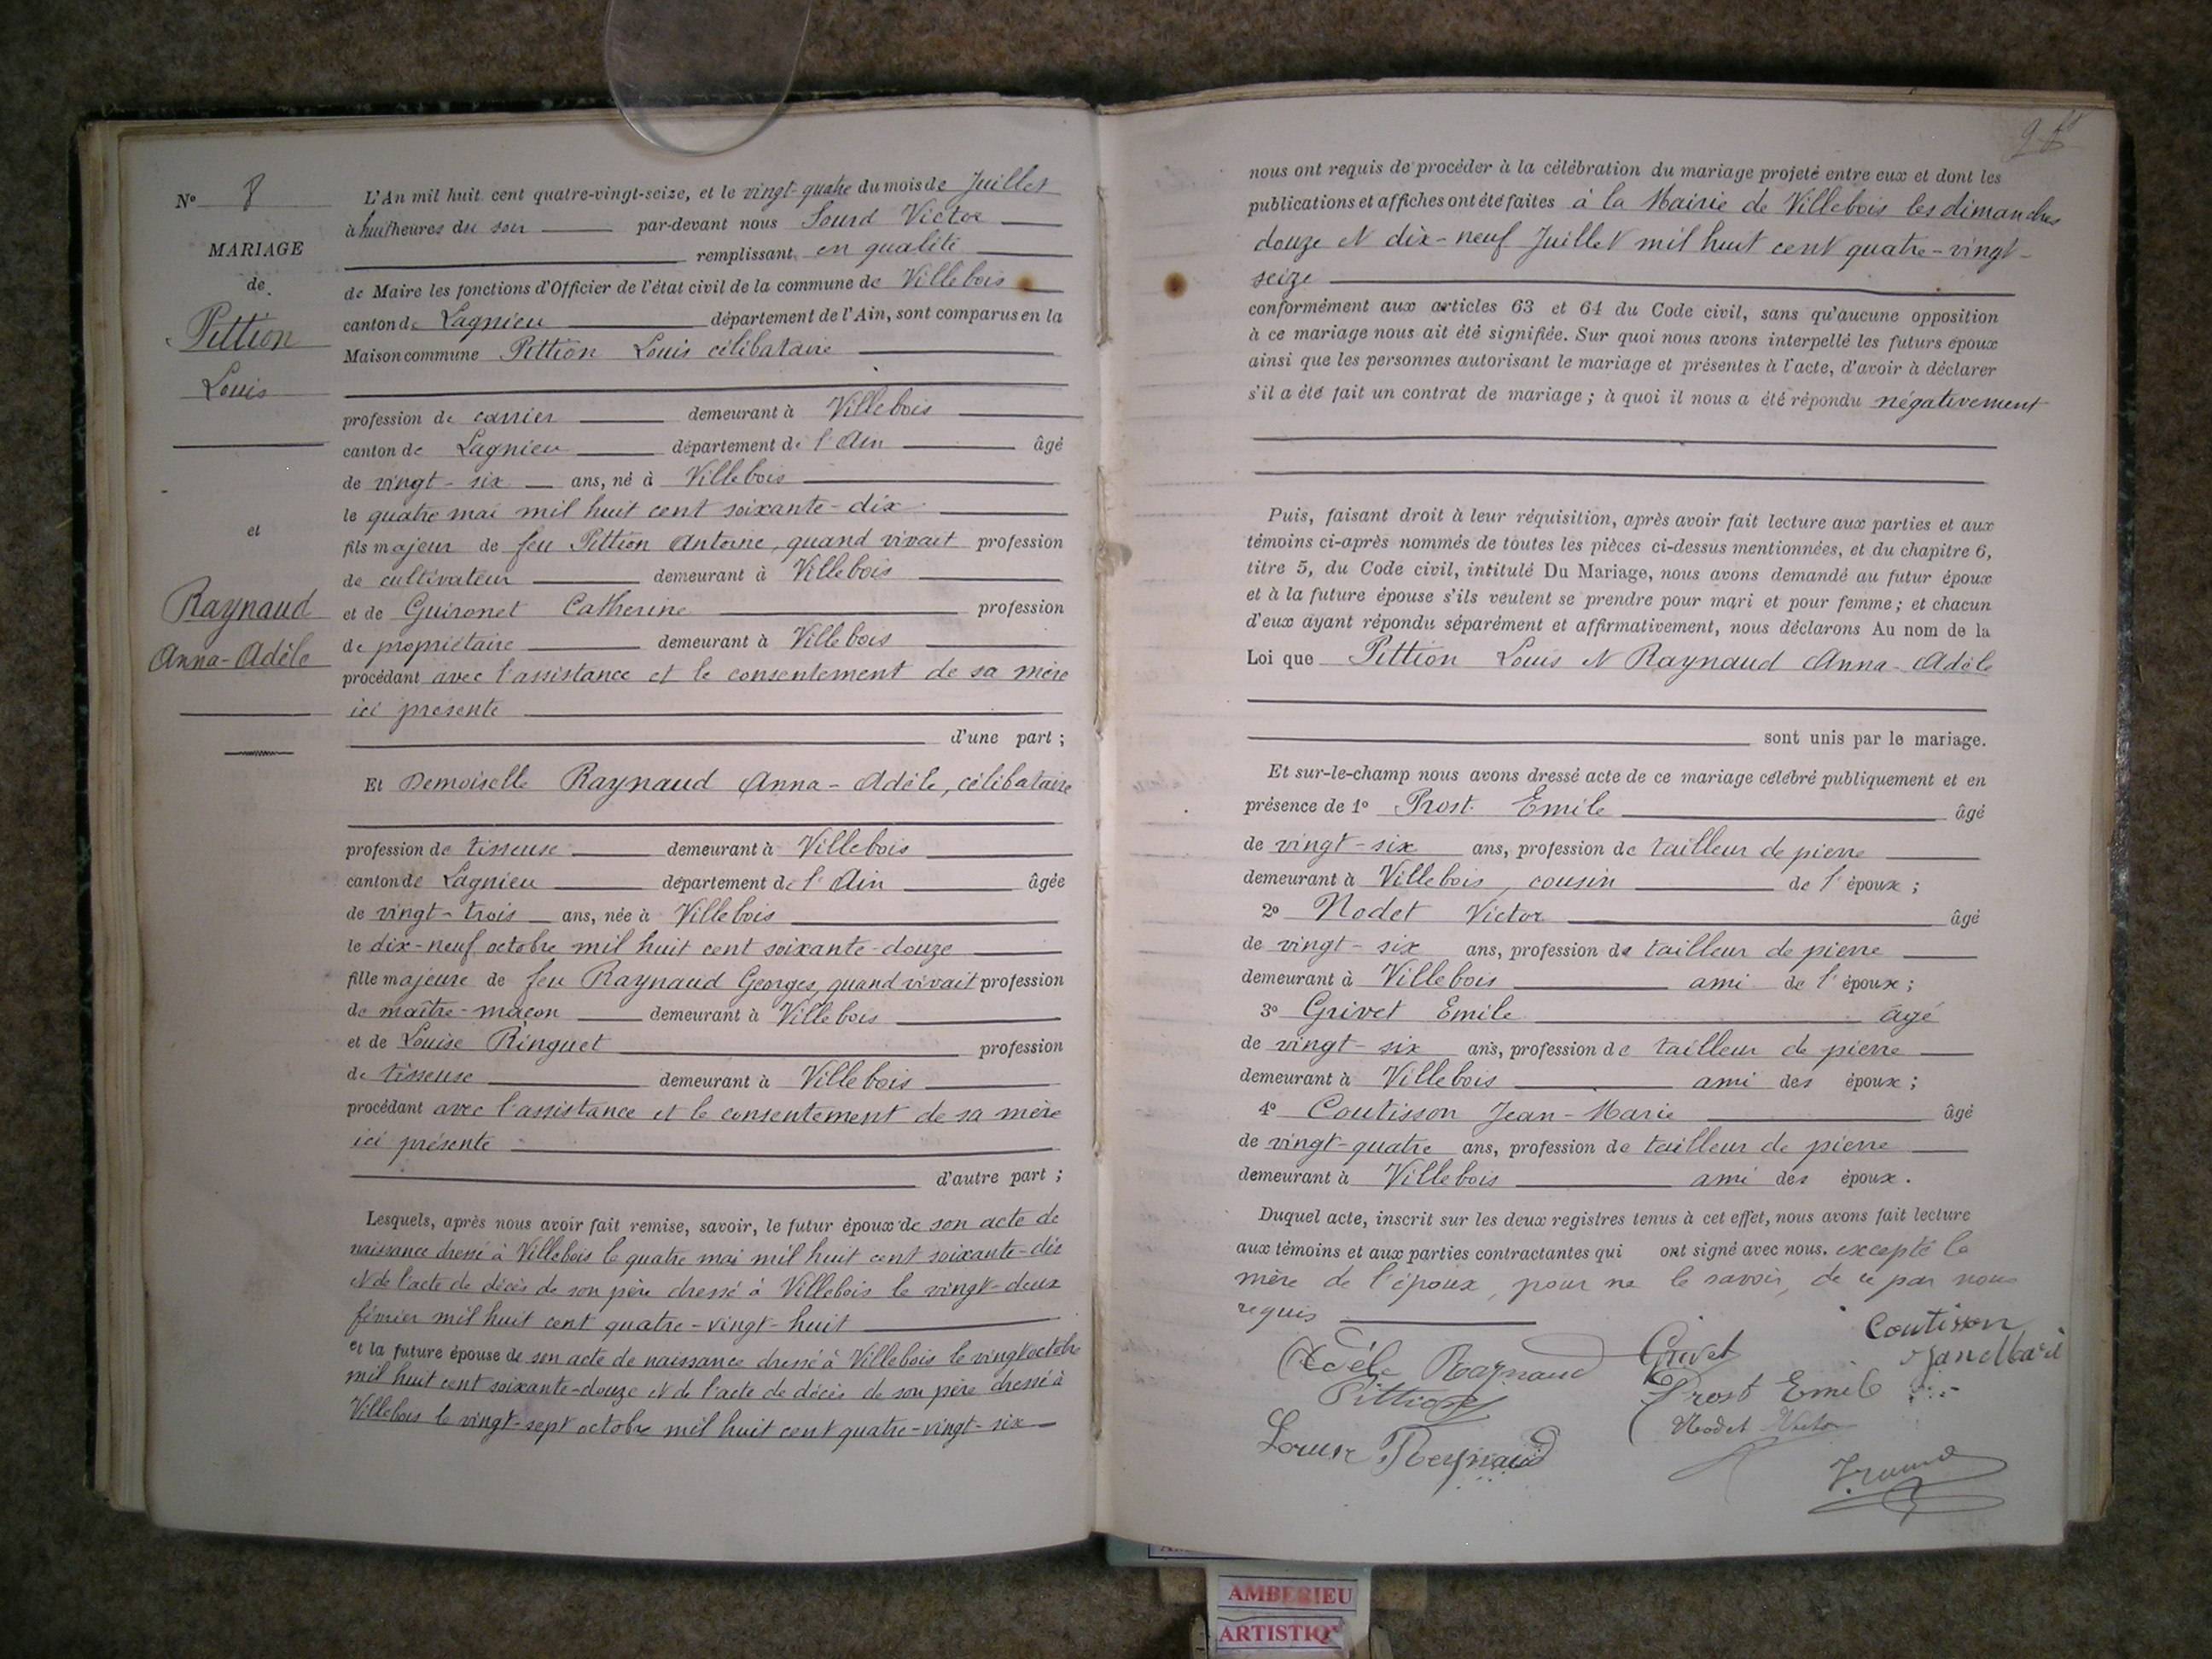 Nº 8
MARIAGE
de
Pittion
Louis
et
Raynaud
Anna-Adèle
L'An mil huit cent quatre-vingt-seize, et le vingt-quatre du mois de Juillet
à huit heures du soir par-devant nous Sourd Victor
remplissant en qualité
de Maire les fonctions d'Officier de l'état civil de la commune de Villebois
canton de Lagnieu département de l'Ain, sont comparus en la
Maison commune Pittion Louis célibataire
profession de carrier demeurant à Villebois
canton de Lagnieu département de l'Ain âgé
de vingt-six ans, né à Villebois
le quatre mai mil huit cent soixante-dix
fils majeur de feu Pittion Antoine, quand vivait profession
de cultivateur demeurant à Villebois
et de Guironet Catherine profession
de propriétaire demeurant à Villebois
procédant avec l'assistance et le consentement de sa mère
ici présente
d'une part ;
Et Demoiselle Raynaud Anna-Adèle, célibataire
profession de tisseuse demeurant à Villebois
canton de Lagnieu département de l'Ain âgée
de vingt-trois ans, née à Villebois
le dix-neuf octobre mil huit cent soixante-douze
fille majeure de feu Raynaud Georges, quand vivait profession
de maître-maçon demeurant à Villebois
et de Louise Ringuet profession
de tisseuse demeurant à Villebois
procédant avec l'assistance et le consentement de sa mère
ici présente
d'autre part ;
Lesquels, après nous avoir fait remise, savoir, le futur époux de son acte de
naissance dressé à Villebois le quatre mai mil huit cent soixante-dix
et de l'acte de décès de son père dressé à Villebois le vingt-deux
février mil huit cent quatre-vingt-huit
et la future épouse de son acte de naissance dressé à Villebois le vingt octobre
mil huit cent soixante-douze et de l'acte de décès de son père dressé à
Villebois le vingt-sept octobre mil huit cent quatre-vingt-six
nous ont requis de procéder à la célébration du mariage projeté entre eux et dont les
publications et affiches ont été faites à la Mairie de Villebois les dimanches
douze et dix-neuf Juillet mil huit cent quatre-vingt-
seize
conformément aux articles 63 et 64 du Code civil, sans qu'aucune opposition
à ce mariage nous ait été signifiée. Sur quoi nous avons interpellé les futurs époux
ainsi que les personnes autorisant le mariage et présentes à l'acte, d'avoir à déclarer
s'il a été fait un contrat de mariage ; à quoi il nous a été répondu négativement
Puis, faisant droit à leur réquisition, après avoir fait lecture aux parties et aux
témoins ci-après nommés de toutes les pièces ci-dessus mentionnées, et du chapitre 6,
titre 5, du Code civil, intitulé Du Mariage, nous avons demandé au futur époux
et à la future épouse s'ils veulent se prendre pour mari et pour femme ; et chacun
d'eux ayant répondu séparément et affirmativement, nous déclarons Au nom de la
Loi que Pittion Louis et Raynaud Anna-Adèle
sont unis par le mariage.
Et sur-le-champ nous avons dressé acte de ce mariage célébré publiquement et en
présence de 1º Prost Emile âgé
de vingt-six ans, profession de tailleur de pierre
demeurant à Villebois, cousin de l'époux ;
2º Nodet Victor âgé
de vingt-six ans, profession de tailleur de pierre
demeurant à Villebois ami de l'époux ;
3º Grivet Emile âgé
de vingt-six ans, profession de tailleur de pierre
demeurant à Villebois ami des époux ;
4º Coutisson Jean-Marie âgé
de vingt-quatre ans, profession de tailleur de pierre
demeurant à Villebois ami des époux.
Duquel acte, inscrit sur les deux registres tenus à cet effet, nous avons fait lecture
aux témoins et aux parties contractantes qui ont signé avec nous. excepté la
mère de l'époux, pour ne le savoir, de ce par nous
requis
Adèle Raynaud Grivet Coutisson
Pittion Prost Emile
Nodet Victor
Louise Reynaud
AMBERIEU
ARTISTIQ